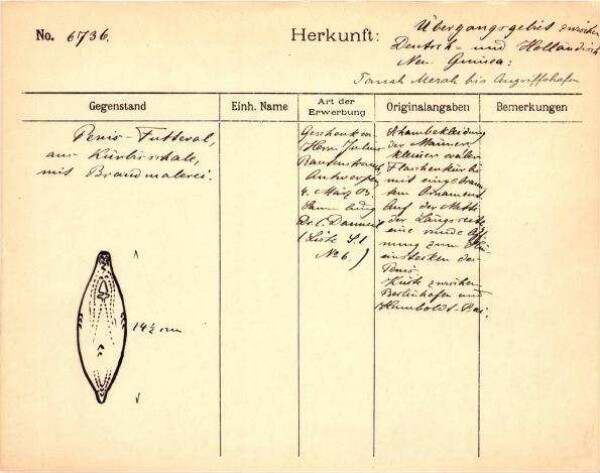 No. 6736.
Herkunft:
Übergangsgebiet zwischen
Deutsch- und Holländisch
Neu Guinea:
Tanah Merah bis Angriffshafen
Gegenstand
Einh. Name
Art der
Erwerbung
Originalangaben
Bemerkungen
Penis-Futteral,
aus Kürbisschale,
mit Brandmalerei.
Geschenk von
Herrn Julius
Antwerpen
4. März 03.
Dr. E.
(Liste S. 1
No 6.)
Schambekleidung
der Männer
kleiner ovaler
Flaschenkürbis
mit eingebrann-
tem Ornament
Auf der Mitte
der Längsseite
eine runde Öff-
nung zum Hin-
einstecken des
Penis.
Küste zwischen
Berlinhafen und
Humboldt-Bai.
14½ cm